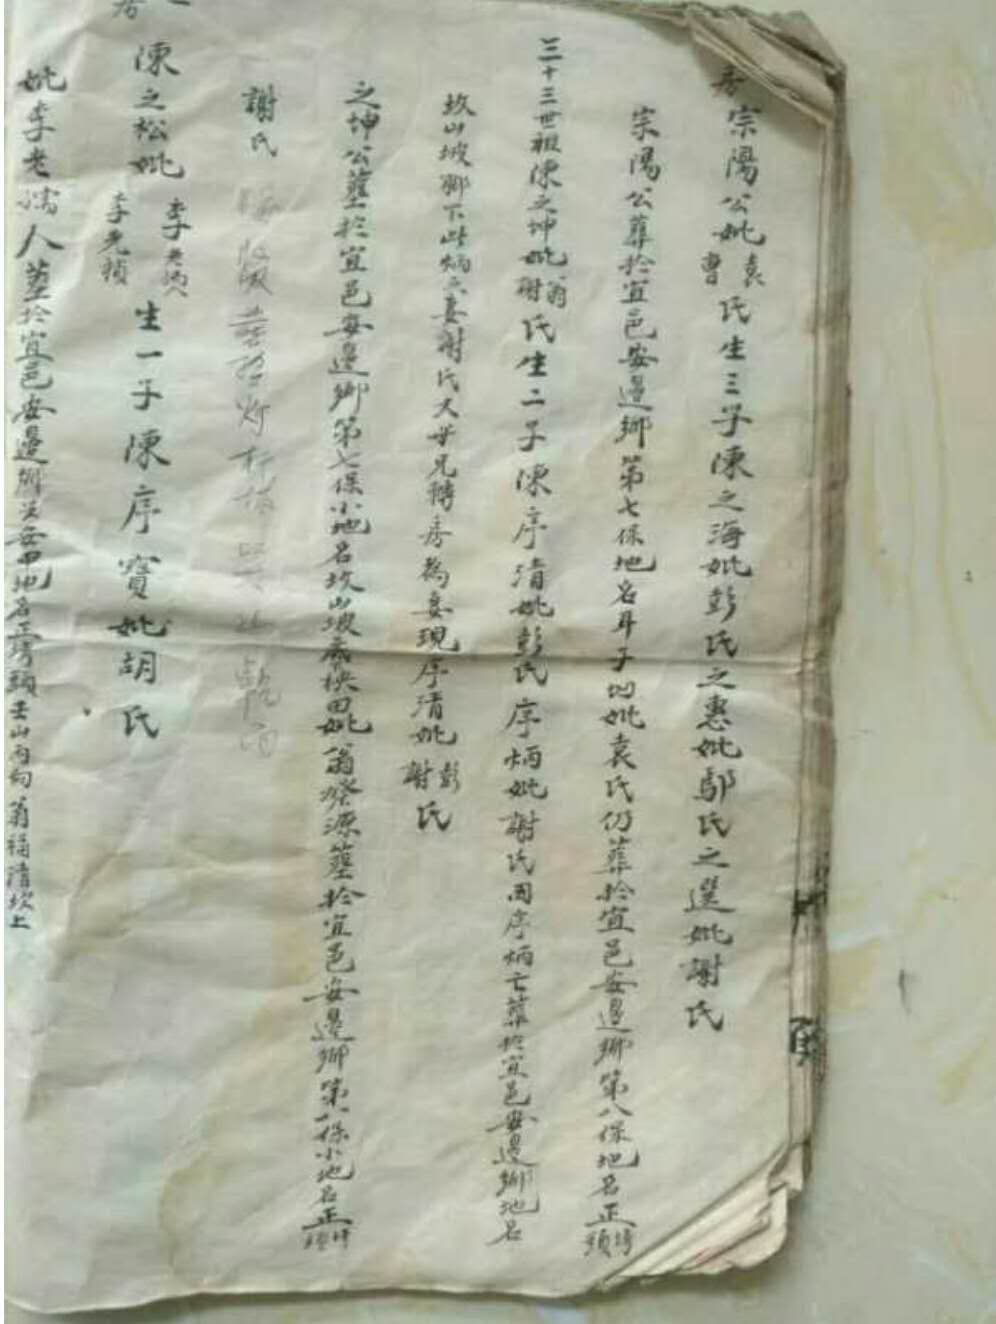 宗陽公妣袁曹氏生三子陳之海妣彭氏之惠妣鄢氏之選妣謝氏
宗陽公葬於宜邑安邊鄉第七保地名斗子凹妣袁氏仍葬於宜邑安邊鄉第八保地名正塆頭
三十三世祖陳之坤妣翁謝氏生二子陳序清妣彭氏序炳妣謝氏因序炳亡葬於宜邑安邊鄉地名
坟山坡腳下此炳之妻謝氏大母兄轉房為妻現序清妣彭謝氏
之坤公塟於宜邑安邊鄉第七保小地名坟山坡秧田妣翁發源塟於宜邑安邊鄉第一保小地名正塆頭
謝氏
陳之松妣李老孺人李光禎生一子陳序寶妣胡氏
妣李老孺人塟於宜邑安邊鄉地名正塆頭壬山丙向翁福清坎上